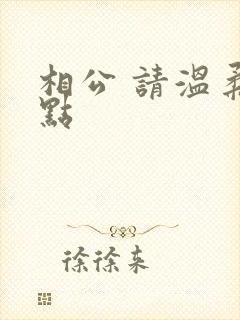 相公 請溫柔
點
徐徐来